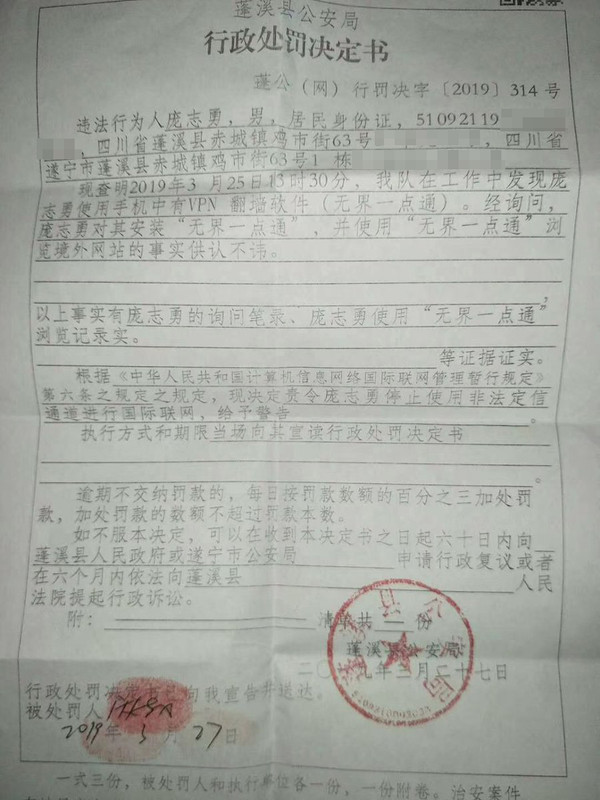 蓬溪县公安局
行政处罚决定书
蓬公（网）行罚决字〔2019〕314号
违法行为人庞志勇，男，居民身份证，51092119
，四川省蓬溪县赤城镇鸡市街63号，四川省
遂宁市蓬溪县赤城镇鸡市街63号1 栋
现查明2019年3 月25日13时30分，我队在工作中发现庞
志勇使用手机中有VPN 翻墙软件（无界一点通）。经询问，
庞志勇对其安装“无界一点通”，并使用“无界一点通”浏
览境外网站的事实供认不讳。
以上事实有庞志勇的询问笔录、庞志勇使用“无界一点通”
浏览记录实。
等证据证实。
根据《中华人民共和国计算机信息网络国际联网管理暂行规定》
第六条之规定之规定，现决定责令庞志勇停止使用非法定信
通道进行国际联网，给予警告。
执行方式和期限当场向其宣读行政处罚决定书
逾期不交纳罚款的，每日按罚款数额的百分之三加处罚
款，加处罚款的数额不超过罚款本数。
如不服本决定，可以在收到本决定书之日起六十日内向
蓬溪县人民政府或遂宁市公安局 申请行政复议或者
在六个月内依法向蓬溪县 人民
法院提起行政诉讼。
附： 清单共 份
蓬溪县公安局
二〇一九年三月二十七日
行政处罚决定书已向我宣告并送达。
被处罚人
2019年3月27日
一式三份，被处罚人和执行单位各一份，一份附卷。治安案件